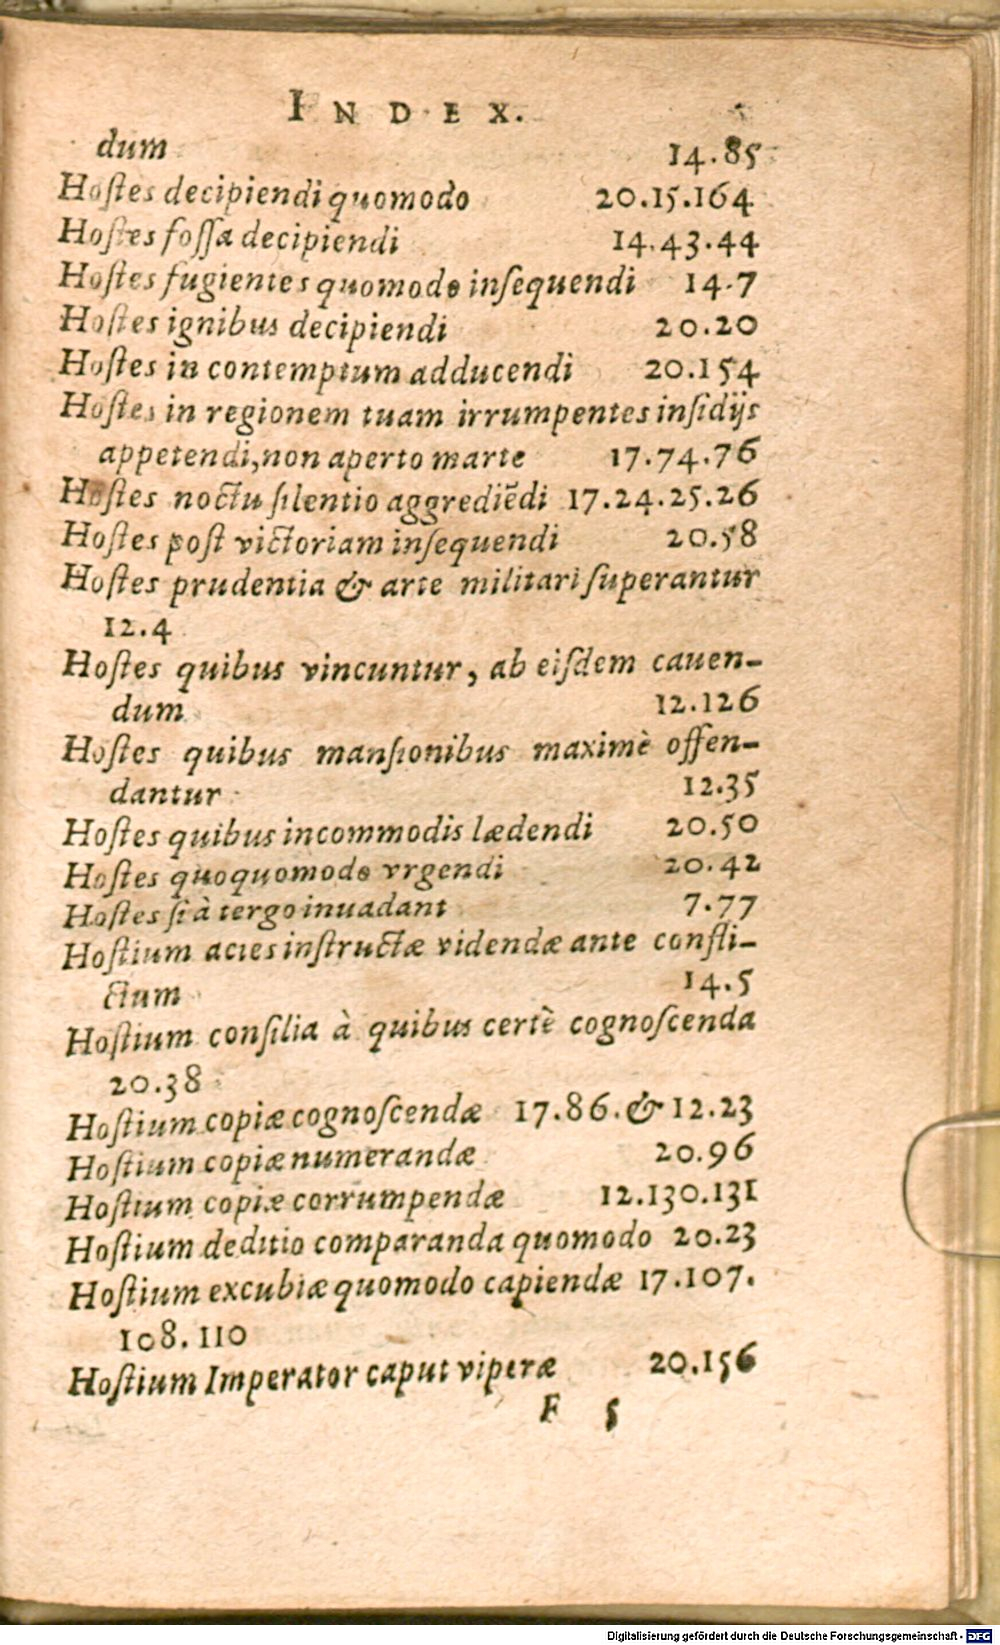 INDEX.
dum 14.85
Hostes decipiendi quomodo 20.15.164
Hostes fossa decipiendi 14.43.44
Hostes fugientes quomodo insequendi 14.7
Hostes ignibus decipiendi 20.20
Hostes in contemptum adducendi 20.154
Hostes in regionem tuam irrumpentes insidijs
appetendi, non aperto marte 17.74.76
Hostes noctu silentio aggrediẽdi 17.24.25.26
Hostes post victoriam insequendi 20.58
Hostes prudentia & arte militari superantur
12.4
Hostes quibus vincuntur, ab eisdem cauen-
dum 12.126
Hostes quibus mansionibus maximè offen-
dantur 12.35
Hostes quibus incommodis lædendi 20.50
Hostes quoquomodo vrgendi 20.42
Hostes si à tergo inuadant 7.77
Hostium acies instructæ videndæ ante confli-
ctum 14.5
Hostium consilia à quibus certè cognoscenda
20.38
Hostium copiæ cognoscendæ 17.86. & 12.23
Hostium copiæ numerandæ 20.96
Hostium copiæ corrumpendæ 12.130.131
Hostium deditio comparanda quomodo 20.23
Hostium excubiæ quomodo capiendæ 17.107.
108.110
Hostium Imperator caput viperæ 20.156
F 5
Digitalisierung gefördert durch die Deutsche Forschungsgemeinschaft - DFG